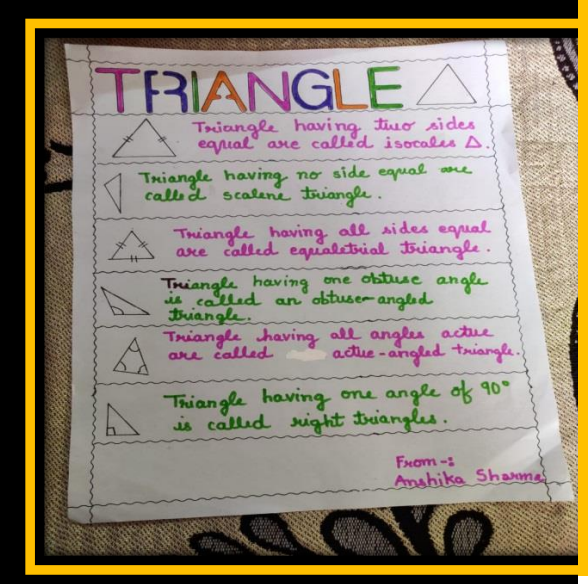 TRIANGLE
Triangle having two sides
equal are called isocales Δ.
Triangle having no side equal are
called scalene triangle.
Triangle having all sides equal
are called equaletrial triangle.
Triangle having one obtuse angle
is called an obtuse-angled
triangle.
Triangle having all angles actue
are called actue-angled triangle.
Triangle having one angle of 90°
is called right triangles.
From -:
Anshika Sharma